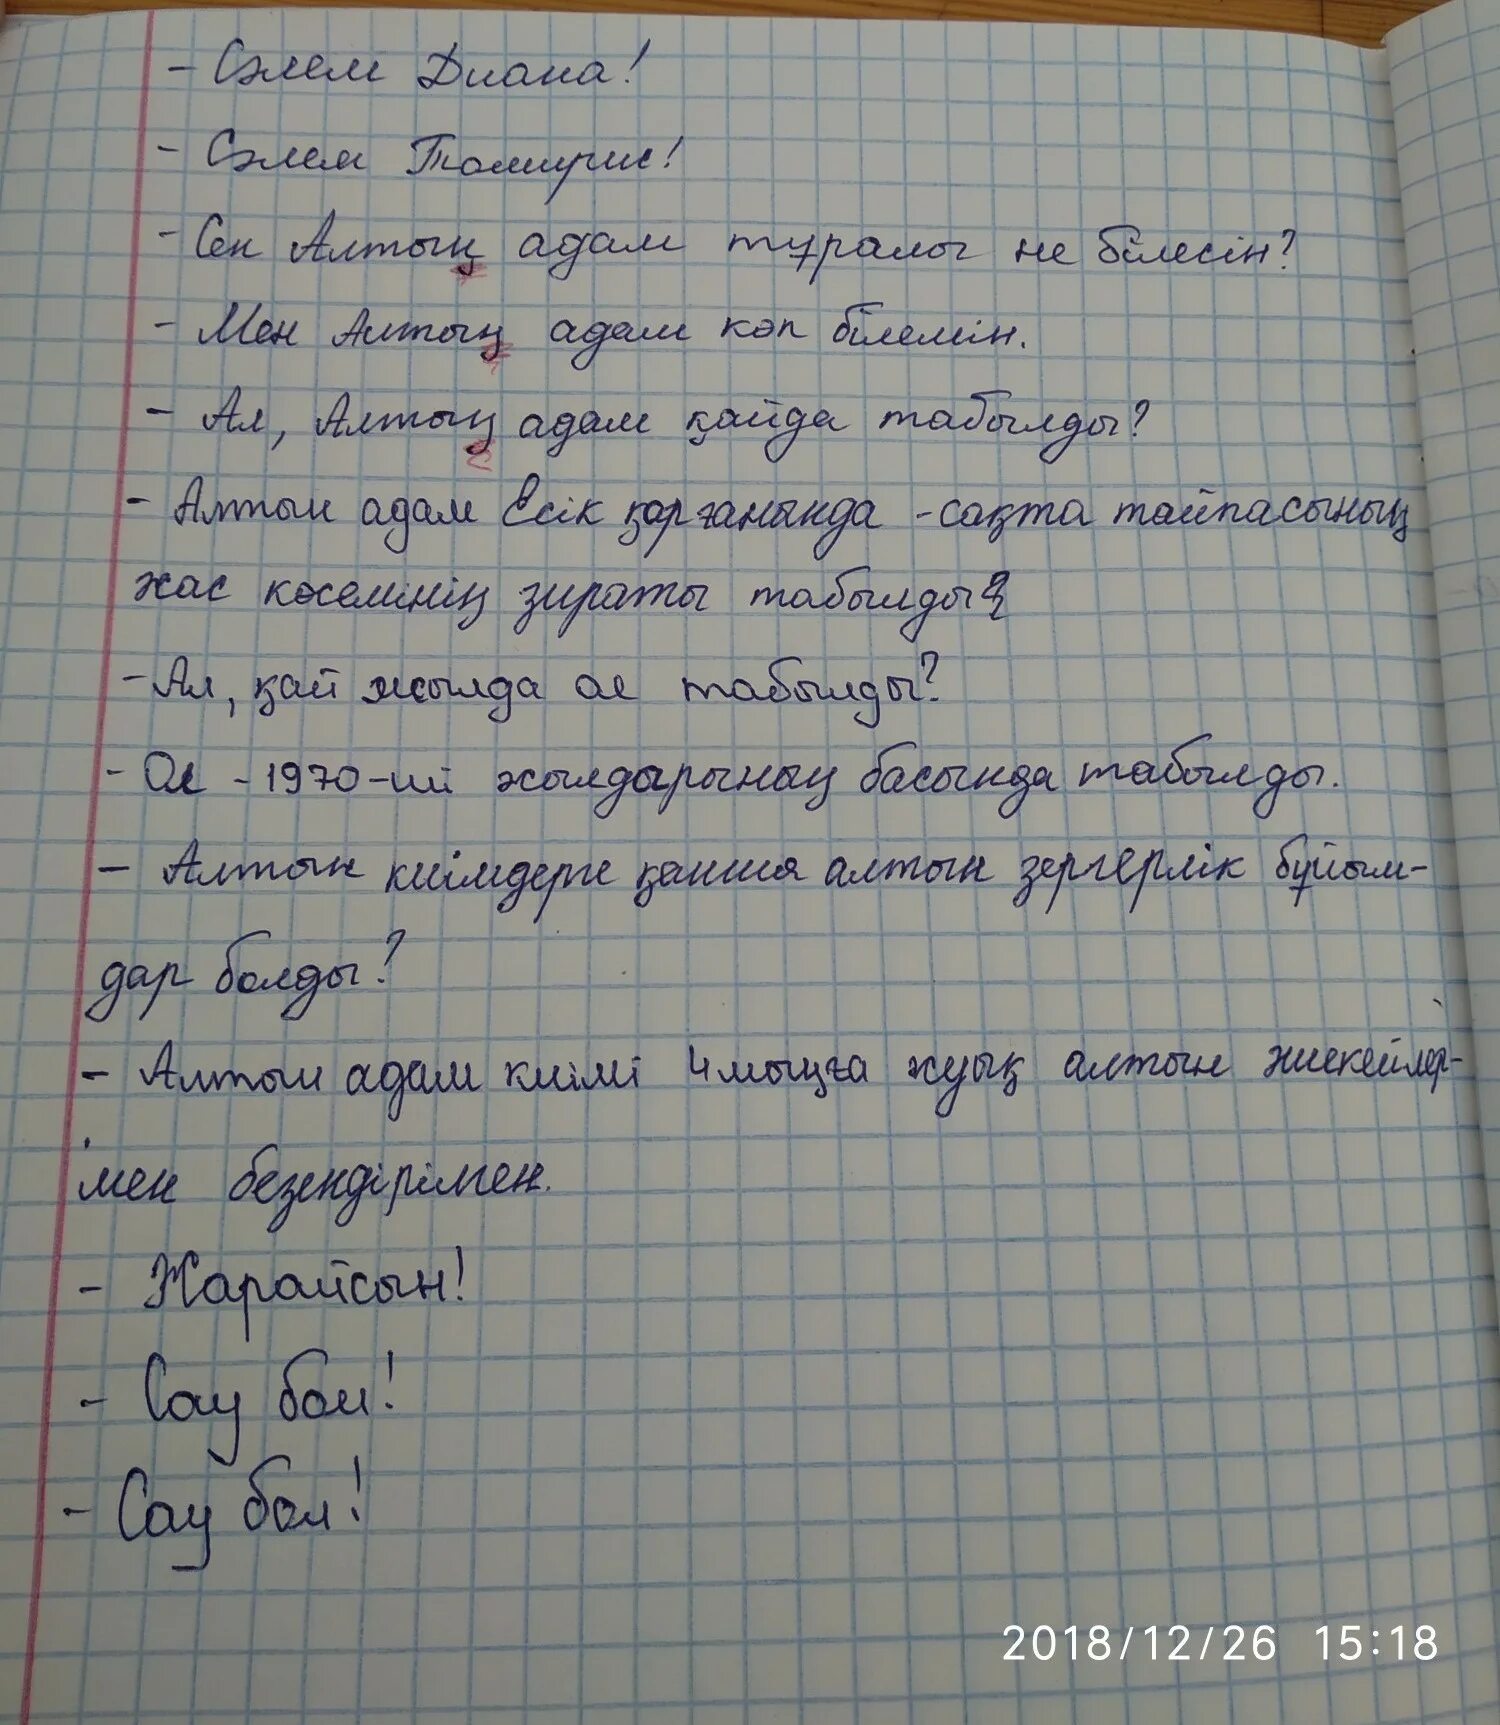 - Сәлем Диана!
- Сәлем Томирис!
- Сен Алтың адам тұралы не білесін?
- Мен Алтың адам көп білемін.
- Ал, Алтың адам қайда табылды?
- Алтын адам Есік қорғанында - сақта тайпасының
жас көсемінің зираты табылды
- Ал, қай жылда ол табылды?
- Ол - 1970-ші жылдарының басында табылды.
- Алтын киімдерге қанша алтын зергерлік бұйым-
дар болды?
- Алтын адам киімі 4мыңға жуық алтын әшекейлер-
мен безендірілген.
- Жарайсын!
- Сау бол!
- Сау бол!
2018/12/26 15:18